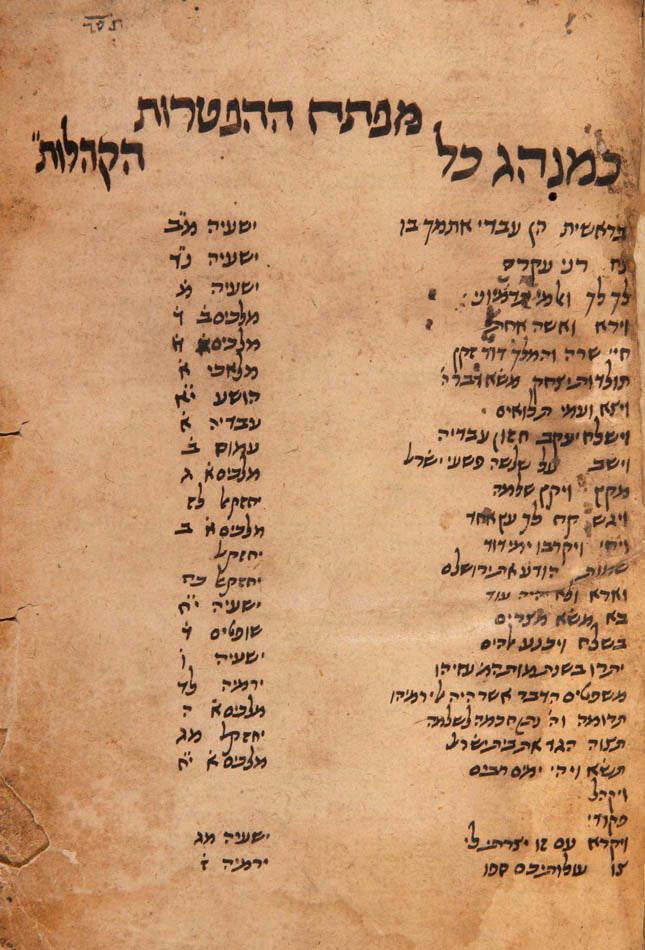 מפתח ההפטרות
כמנהג כל הקהלות"
בראשית הן עבדי אתמך בו ישעיה מ"ב
נח רני עקרה ישעיה נ"ד
לך לך ולמי תדמיוני ישעיה מ
וירא ואשה אחת מלכים ב ד
חיי שרה והמלך דוד זקן מלכים א א
תולדות יצחק משא דבר ה' מלאכי א
ויצא ועמי תלואים הושע י"א
וישלח יעקב חזון עבדיה עבדיה א
וישב על שלשה פשעי ישראל עמוס ב
מקץ ויקץ שלמה מלכים א ג
ויגש קח לך עץ אחד יחזקאל לז
ויחי ויקרבו ימי דוד מלכים א ב
שמות הודע את ירושלם יחזקאל
וארא ולא יהיה עוד יחזקאל כח
בא משא מצרים ישעיה י"ח
בשלח ויכנע אלהים שופטים ד
יתרו בשנת מות המ' עזיהו ישעיה ו
משפטים הדבר אשר היה לירמיהו ירמיה לד
תרומה וה' נתן חכמה לשלמה מלכים א ה
תצוה הגד את בית ישראל יחזקאל מג
תשא ויהי ימים רבים מלכים א י"ח
ויקהל
פקודי
ויקרא עם זו יצרתי לי ישעיה מג
צו עולותיכם ספו ירמיה ז